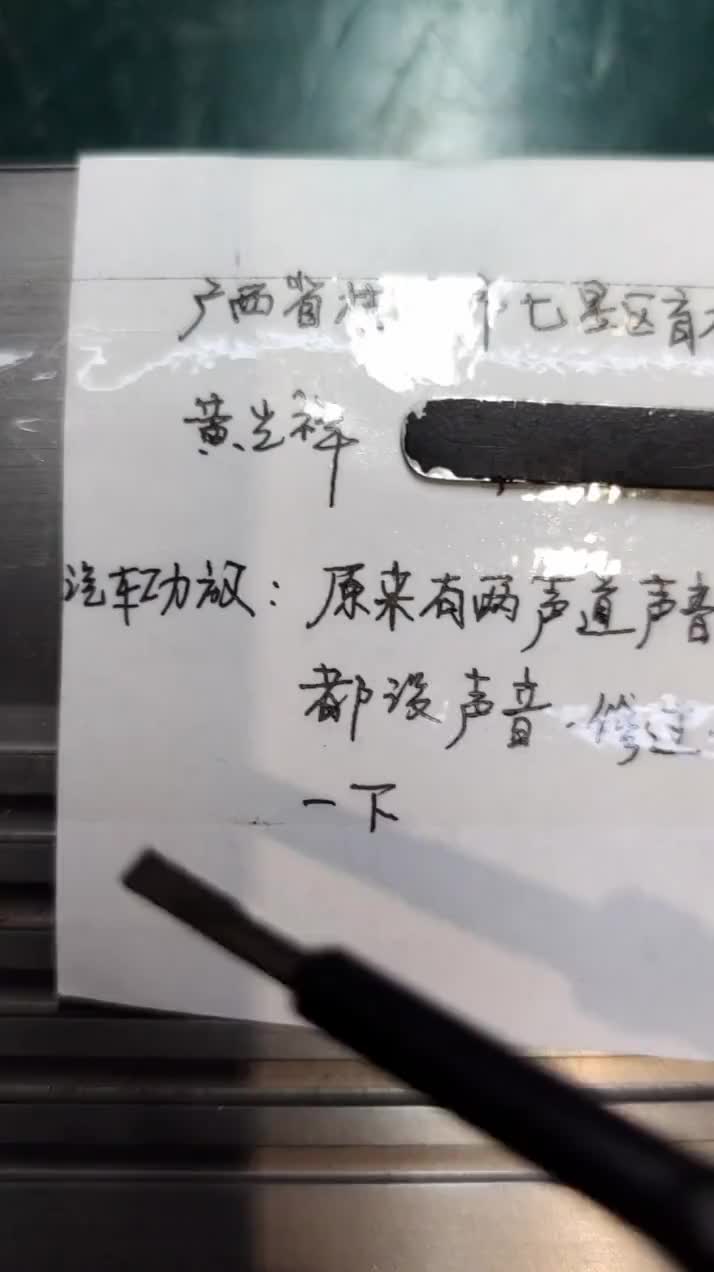 广西省 市七星区育
黄生祥
汽车功放：原来有两声道声音
都没声音.修过
一下